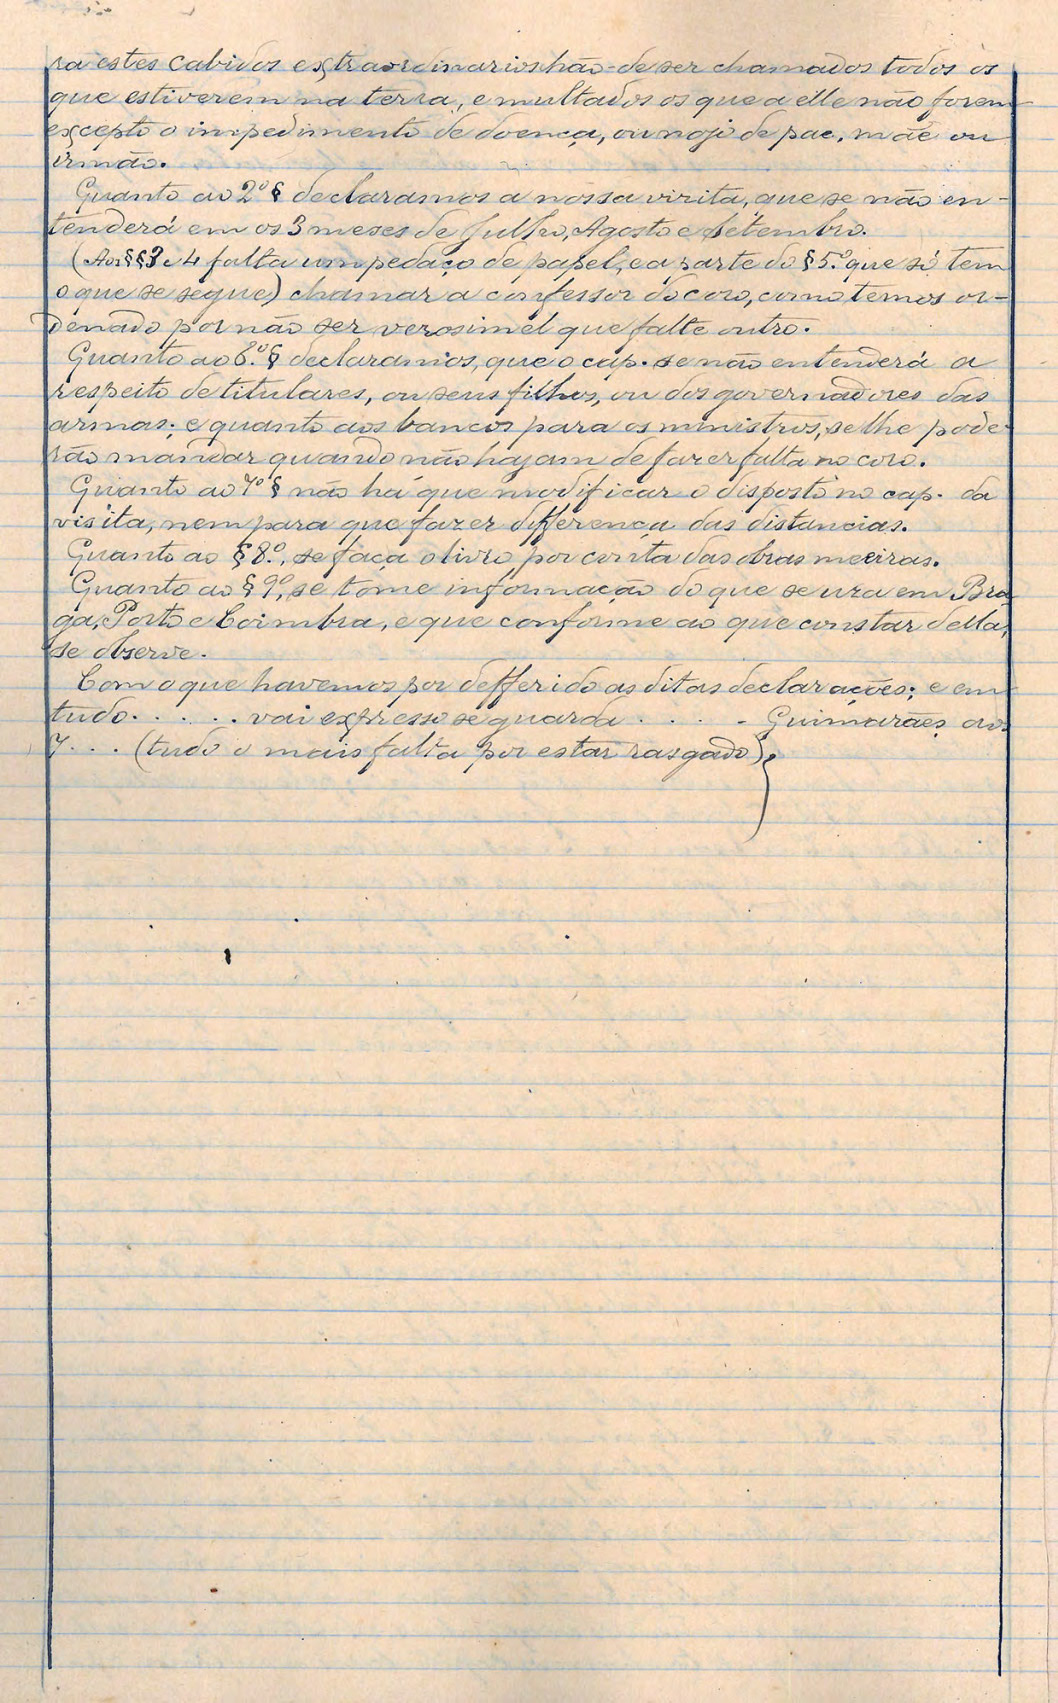 ra estes cabidos extraordinarios hão-de ser chamados todos os
que estiverem na terra, e multados os que a elle não forem
excepto o impedimento de doença, ou nojo de pae, mãe ou
irmão.
Quanto ao 2º § declaramos a nossa visita, que se não en-
tenderá em os 3 meses de Julho, Agosto e Setembro.
(Aos §§ 3 e 4 falta um pedaço de papel, e a parte do § 5.º que só tem
o que se segue) chamar a confessor do coro, como temos or-
denado por não ser verosimel que falte outro.
Quanto ao 6.º § declaramos, que o cap. se não entenderá a
respeito de titulares, ou seus filhos, ou dos governadores das
armas; e quanto aos bancos para os ministros, se lhe pode-
rão mandar quando não hajam de fazer falta no coro.
Quanto ao 7º § não há que modificar o disposto no cap. da
visita, nem para que fazer differença das distancias.
Quanto ao § 8.º, se faça o livro por conta das obras meeiras.
Quanto ao § 9º, se tome informação do que se uza em Bra-
ga, Porto e Coimbra, e que conforme ao que constar della,
se observe.
Com o que havemos por defferido as ditas declarações; e em
tudo. . . . . . vai expresso se guarda . . . . - Guimarães aos
7 . . . (tudo o mais falta por estar rasgado)